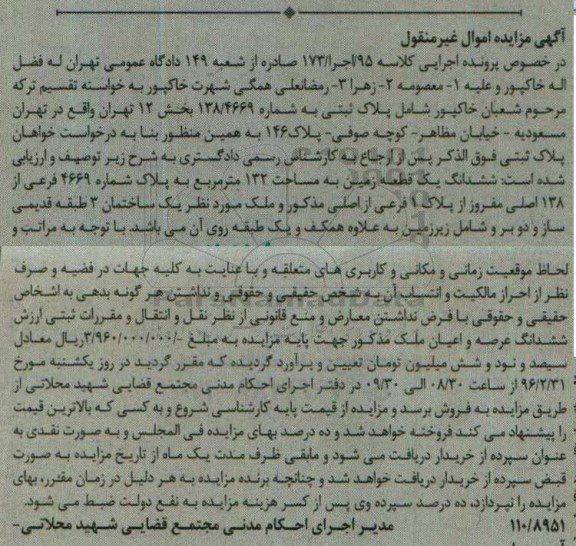 آگهی مزایده اموال غیرمنقول
در خصوص پرونده اجرایی کلاسه ۹۵/اجرا/۱۷۳ صادره از شعبه ۱۴۹ دادگاه عمومی تهران له فضل
اله خاکپور و علیه ۱- معصومه ۲- زهرا ۳- رمضانعلی همگی شهرت خاکپور به خواسته تقسیم ترکه
مرحوم شعبان خاکپور شامل پلاک ثبتی به شماره ۱۳۸/۴۶۶۹ بخش ۱۲ تهران واقع در تهران
مسعودیه - خیابان مظاهر- کوچه صوفی- پلاک۱۴۶ به همین منظور بنا به درخواست خواهان
پلاک ثبتی فوق الذکر پس از ارجاع به کارشناس رسمی دادگستری به شرح زیر توصیف و ارزیابی
شده است: ششدانگ یک قطعه زمین به مساحت ۱۳۲ مترمربع به پلاک شماره ۴۶۶۹ فرعی از
۱۳۸ اصلی مفروز از پلاک فرعی از اصلی مذکور و ملک مورد نظر یک ساختمان ۳ طبقه قدیمی
ساز و دو بر و شامل زیرزمین به علاوه همکف و یک طبقه روی آن می باشد. با توجه به مراتب و
لحاظ موقعیت زمانی و مکانی و کاربری های متعلقه و با عنایت به کلیه جهات در قضیه و صرف
نظر از احراز مالکیت و انتساب آن به شخص حقیقی و حقوقی و نداشتن هر گونه بدهی به اشخاص
حقیقی و حقوقی با فرض نداشتن معارض و منع قانونی از نظر نقل و انتقال و مقررات ثبتی ارزش
ششدانگ عرصه و اعیان ملک مذکور جهت پایه مزایده به مبلغ ۳/۹۶۰/۰۰۰/۰۰۰/-ریال معادل
سیصد و نود و شش میلیون تومان تعیین و برآورد گردیده که مقرر گردید در روز یکشنبه مورخ
۹۶/۲/۳۱ از ساعت ۰۸/۳۰ الی ۰۹/۳۰ در دفتر اجرای احکام مدنی مجتمع قضایی شهید محلاتی از
طریق مزایده به فروش برسد و مزایده از قیمت پایه کارشناسی شروع و به کسی که بالاترین قیمت
را پیشنهاد می کند فروخته خواهد شد و ده درصد بهای مزایده فی المجلس و به صورت نقدی به
عنوان سپرده از خریدار دریافت می شود و مابقی ظرف مدت یک ماه از تاریخ مزایده به صورت
قبض سپرده از خریدار دریافت خواهد شد و چنانچه برنده مزایده به هر دلیل در زمان مقرر، بهای
مزایده را نپردازد، ده درصد سپرده وی پس از کسر هزینه مزایده به نفع دولت ضبط می شود.
۱۱۰/۸۹۵۱ مدیر اجرای احکام مدنی مجتمع قضایی شهید محلاتی-